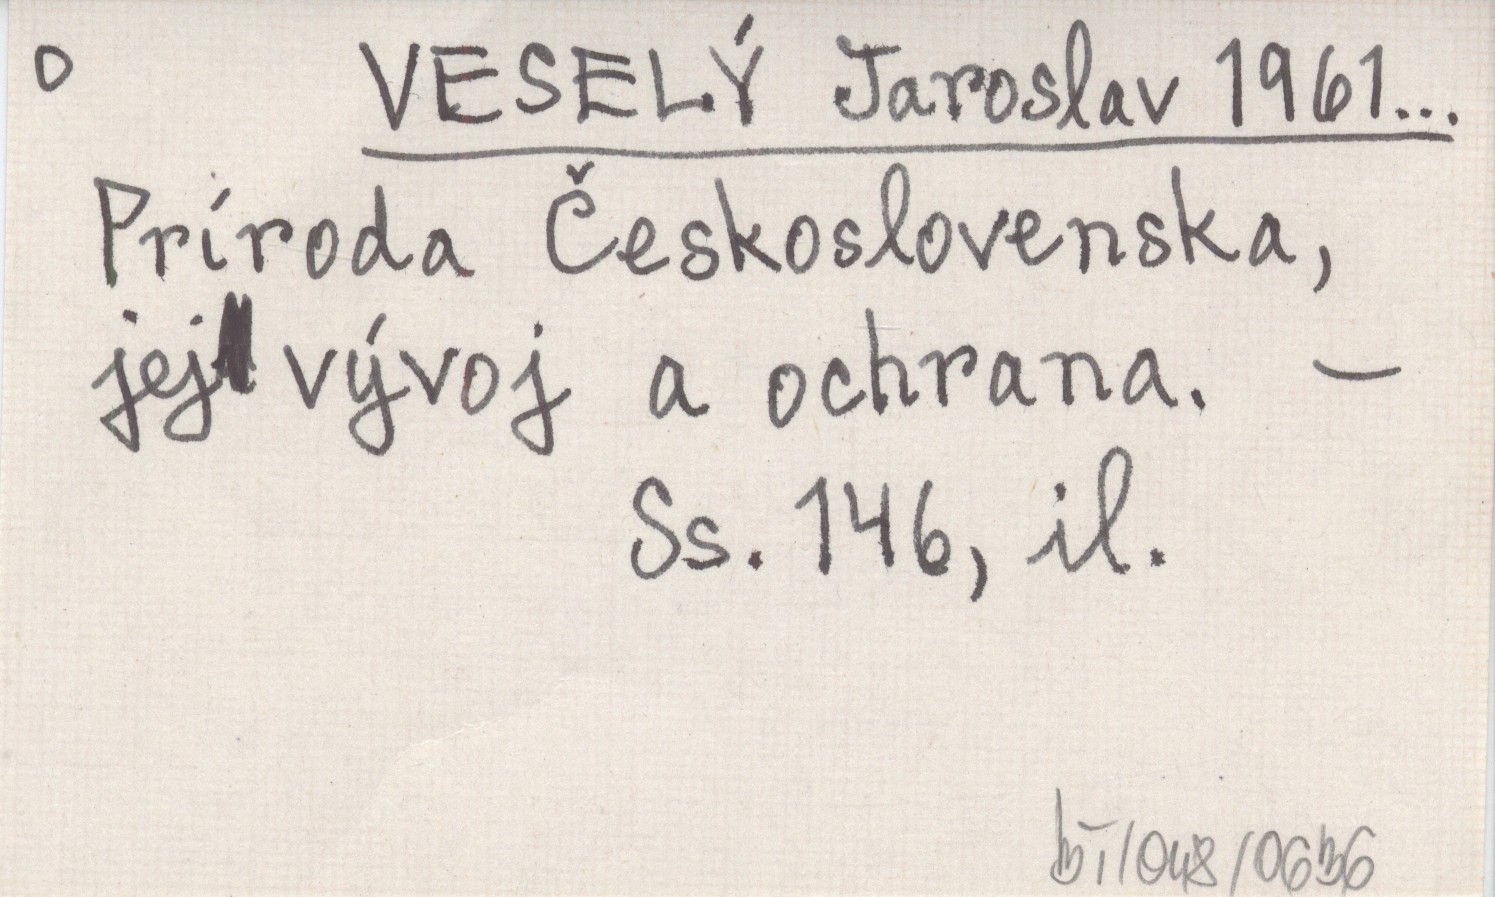 o VESELÝ Jaroslav 1961...
Príroda Československa,
jej vývoj a ochrana. –
Ss. 146, il.
/048/0636